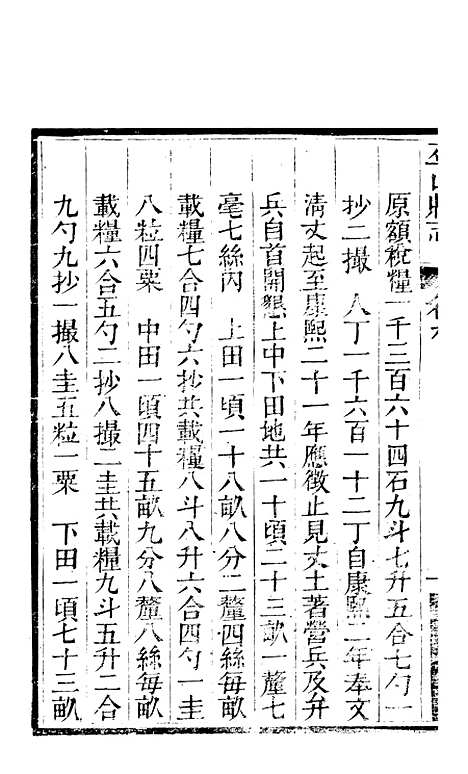 巫山縣志
卷六
原額稅糧一千三百六十四石九斗七升五合七勺一
抄二撮　人丁一千六百一十二丁自康熙二年奉文
淸丈起至康熙二十一年應徵止見丈土著營兵及弁
兵自首開懇上中下田地共一十頃二十三畝一釐七
毫七絲內　上田一頃一十八畝八分二釐四絲每畝
載糧七合四勺六抄共載糧八斗八升六合四勺一圭
八粒四粟　中田一頃四十五畝九分八釐八絲每畝
載糧六合五勺二抄八撮二圭共載糧九斗五升二合
九勺九抄一撮八圭五粒一粟　下田一頃七十三畝